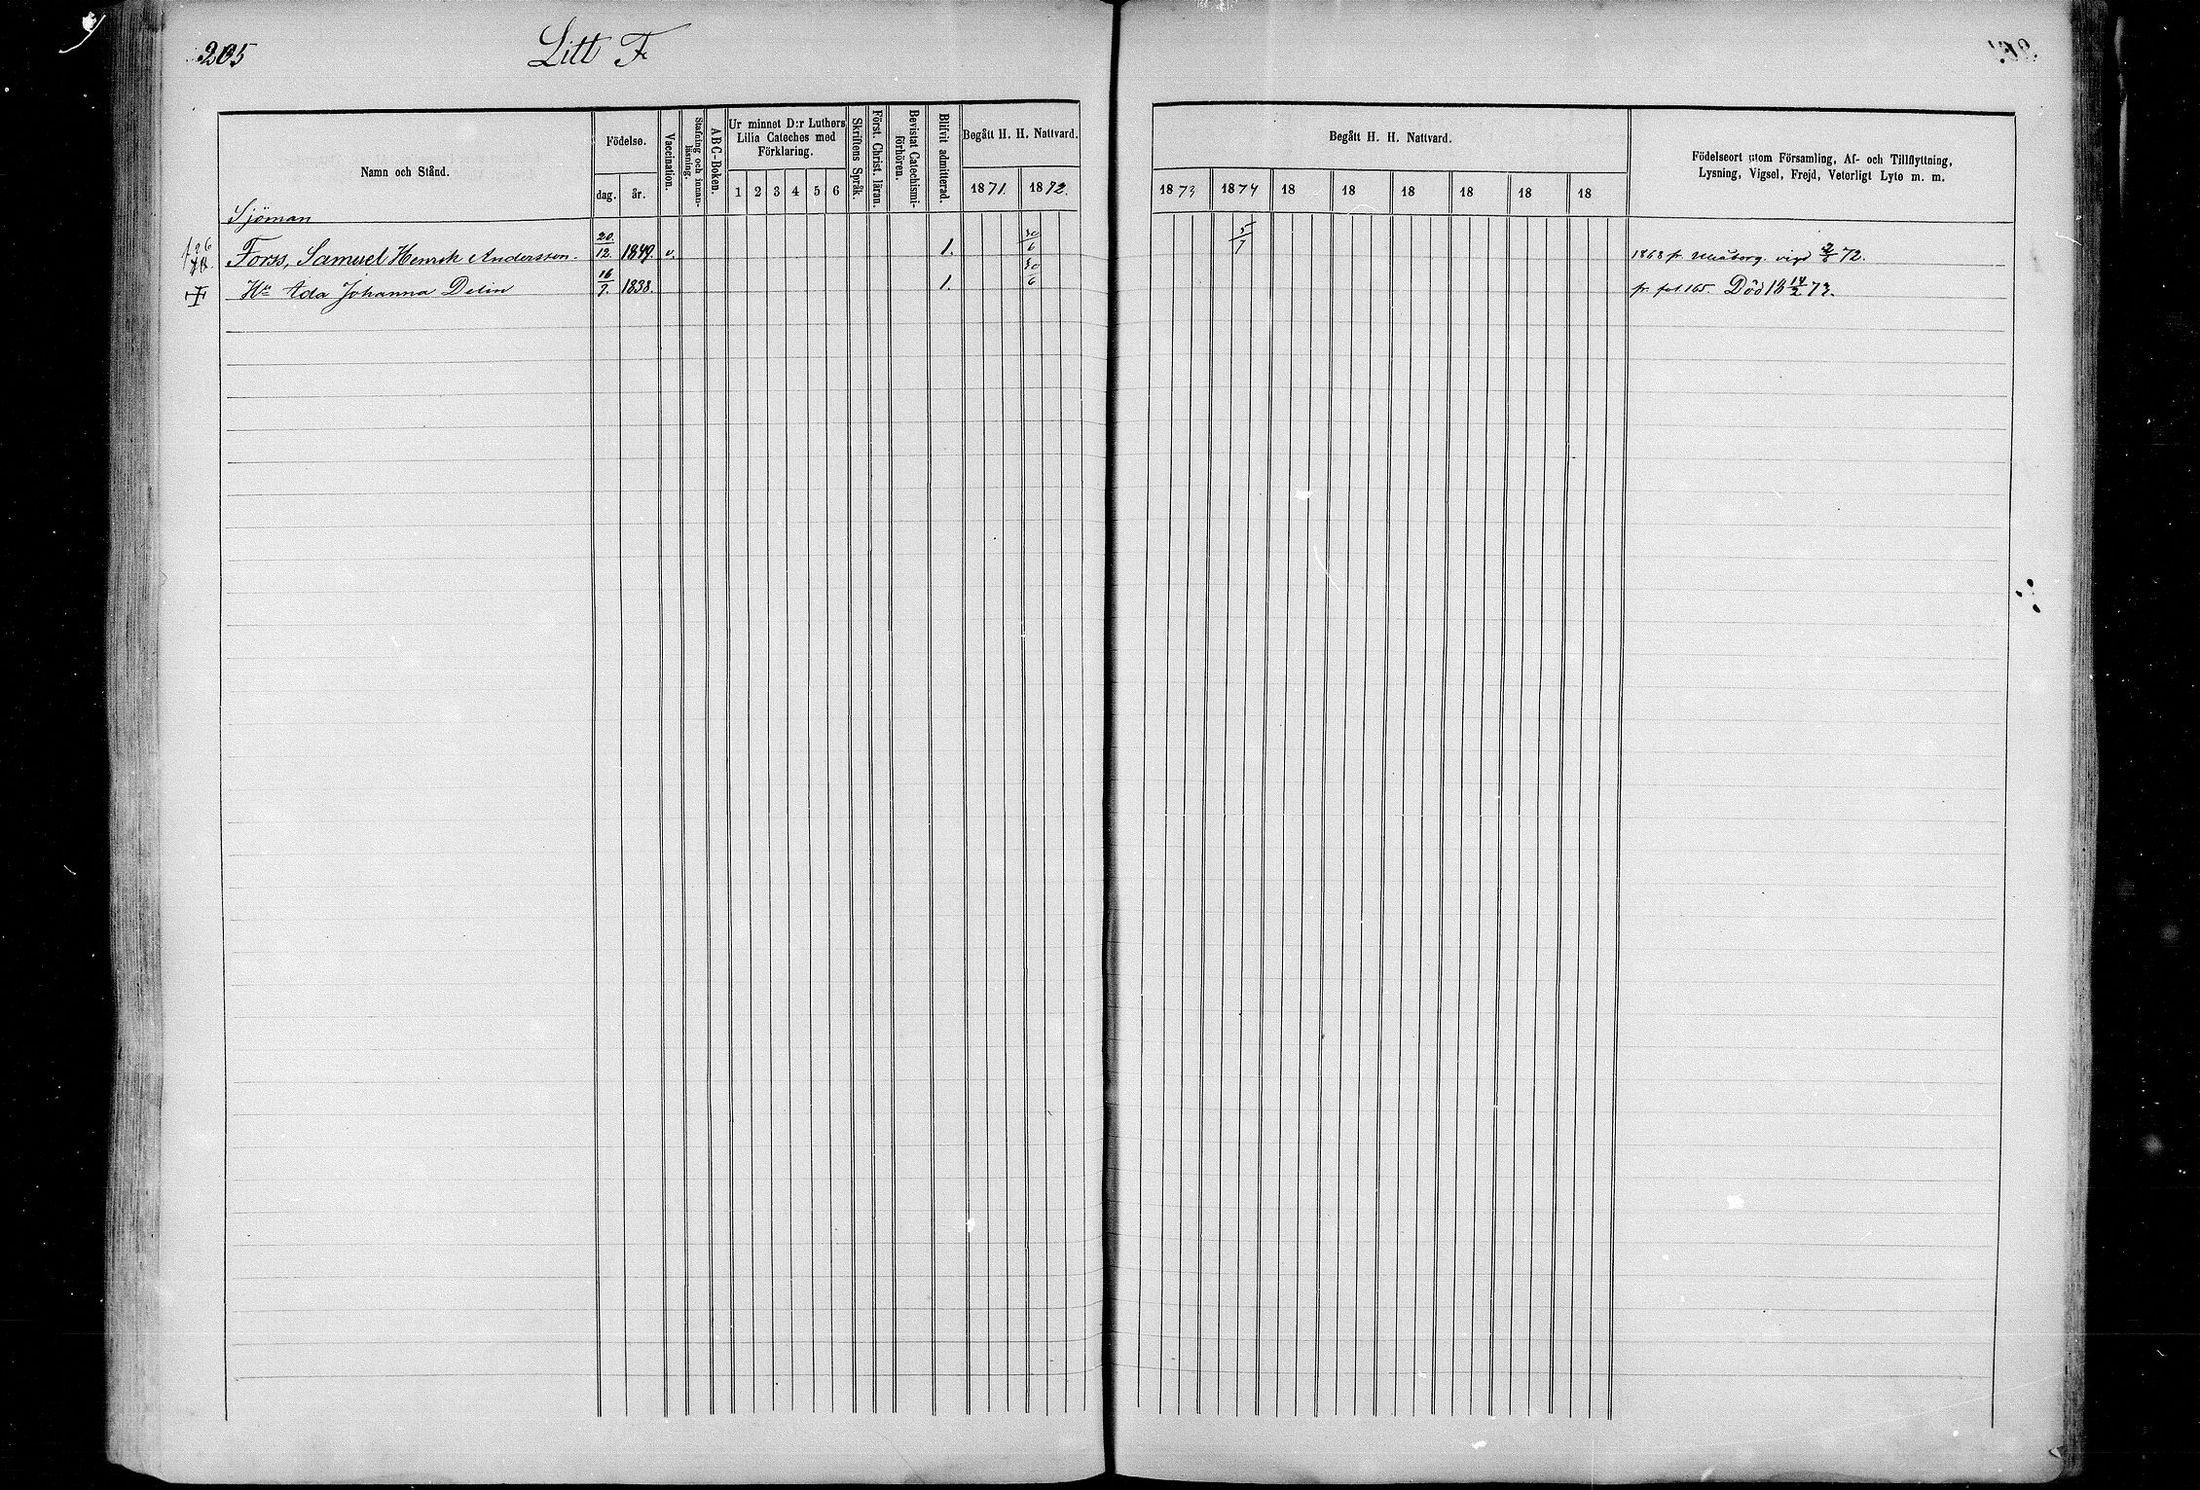 205 Litt F
Namn och Stånd.
Födelse.
dag. år.
Vaccination.
Stafning och innan-
läsning.
ABC-Boken.
Ur minnet D:r Luthers
Lilla Cateches med
Förklaring.
1 2 3 4 5 6
Skriftens Språk.
Först. Christ. läran.
Bevistat Catechismi-
förhören.
Blifvit admitterad.
Begått H. H. Nattvard.
1871. 1872.
Begått H. H. Nattvard.
1873 1874 18 18 18 18 18 18
Födelseort utom Församling, Af- och Tillflyttning,
Lysning, Vigsel, Frejd, Veterligt Lyte m. m.
Sjöman
Forss, Samuel Henrik Andersson. 20/12. 1849. v. 1. 30/6 5/7 1868 fr. vigd 72.
Hu Ada Johanna Delin 16/7. 1838. 1. 30/6 fr. fol 165. Död 18 14/2 73.